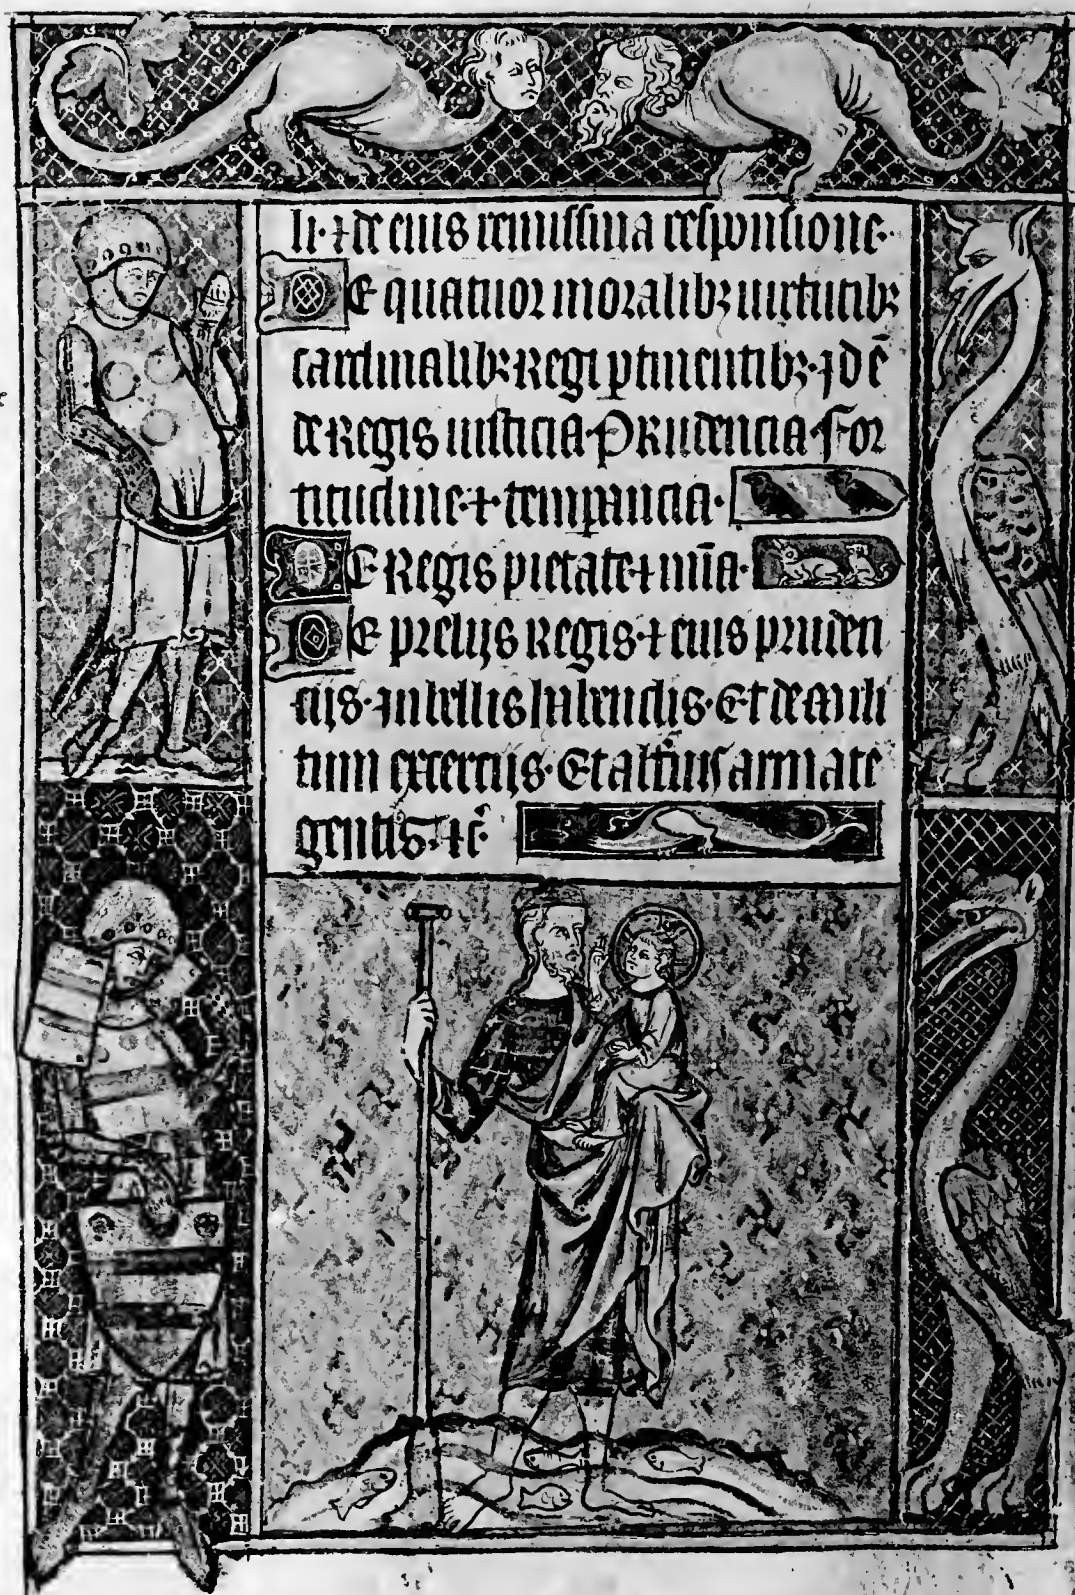 li · ⁊ de eius responsione ·
De quatuor moralibꝫ uirtutibꝫ
cardinalibꝫ Regi ꝑtinentibꝫ · id ē
de Regis iusticia · Prudencia · For
titudine · ⁊ temꝑancia ·
De Regis pietate ⁊ mīa ·
De prelijs Regis · ⁊ eius pruden
cijs · in bellis habendis · Et de mili
tum excercijs · Et altius armate
gentis · ⁊ c̄ ·